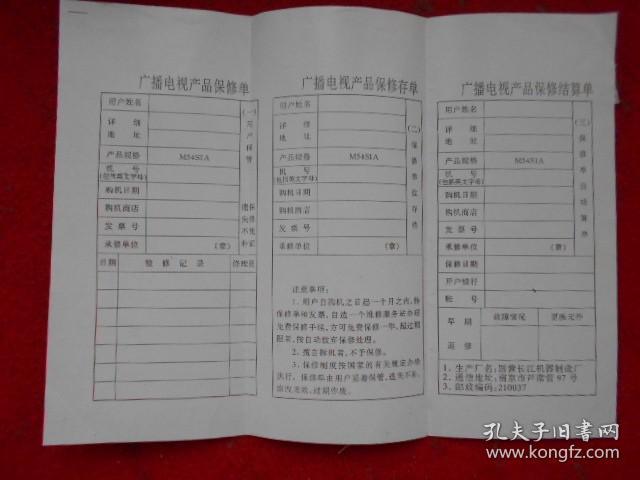 广播电视产品保修单
用户姓名
详 细
地 址
产品规格 M54S1A
机 号
(包括英文字母)
购机日期
购机商店
发 票 号
承修单位 (章)
(一)用户保管
日期 检修记录
广播电视产品保修存单
用户姓名
详 细
地 址
产品规格 M54S1A
机 号
(包括英文字母)
购机日期
购机商店
发 票 号
承修单位 (章)
(二)保修单位存档
注意事项:
1、用户自购机之日起一个月之内,持
保修单和发票,自选一个维修服务站办理
免费保修手续,方可免费保修一年,超过期
限者,按自动放弃保修处理。
2、擅言拆机者,不予保修。
3、保修制度按国家的有关规定办法
执行,保修单由用户妥善保管,遗失不补,
涂改无效,过期作废。
广播电视产品保修结算单
用户姓名
详 细
地 址
产品规格 M54S1A
机 号
(包括英文字母)
购机日期
购机商店
发 票 号
承修单位 (章)
保修日期
开户银行
帐 号
早 期 故障情况 更换元件
返 修
1、生产厂名:国营长江机器制造厂
2、通信地址:南京市芦席营97号
3、邮政编码:210037
孔夫子旧书网
www.kongfz.com